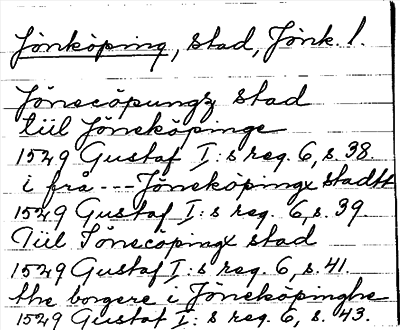 Jönköping, stad, Jönk. l.
Jönecöpungz stad
tiil Jöneköpinge
1529 Gustaf I:s reg. 6, s. 38.
i frå --- Jöneköpingx stadtt
1529 Gustaf I:s reg. 6, s. 39.
Tiil Jönecöpingx stad
1529 Gustaf I:s reg. 6, s. 41.
the borgere i Jöneköpinghe
1529 Gustaf I:s reg. 6, s. 43.